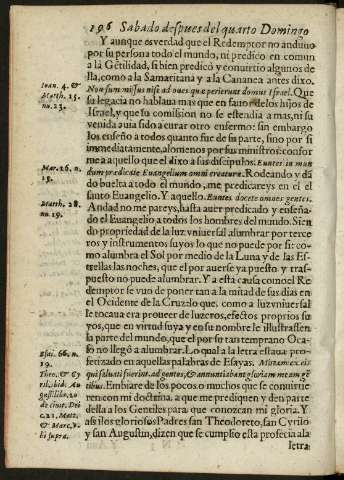 196 Sabado despues del quarto Domingo
Y aunque es verdad que el Redemptor no anduuo
por su persona todo el mundo, ni predicò en comun
a la Gẽtilidad, si bien predicó y conuirtio algunos de
lla, como a la Samaritana y a la Cananea antes dixo.
Ioan. 4. &
Matth. 15.
nu. 23.
Non sum missus nisi ad oues quæ perierunt domus Israel. Que
su legacia no hablaua mas que en fauor de los hijos de
Israel, y que su comission no se estendia a mas, ni su
venida auia sido a curar otro enfermo: sin embargo
los enseño a todos quanto fue de su parte, sino por si
immediatamente, alomenos por sus ministros: confor
me a aquello que el dixo a sus discipulos. Euntes in mun
Mar. 16. n.
15.
dum predicate Euangelium omni creaturæ. Rodeando y dã
do buelta a todo el mundo, me predicareys en el el
santo Euangelio. Y aquello. Euntes docete omnes gentes.
Matth. 28.
nu. 19.
Andad no me pareys, hasta auer predicado y enseña-
do el Euangelio a todos los hombres del mundo. Sien
do propriedad de la luz vniuersal alumbrar por terce
ros y instrumentos suyos lo que no puede por si: co-
mo alumbra el Sol por medio de la Luna y de las Es-
trellas las noches, que el por auerse ya puesto y tras-
puesto no puede alumbrar. Y a esta causa como el Re-
demptor se vuo de poner tan a la mitad de sus dias en
el Occidente de la Cruz: lo que, como a luz vniuersal
le tocaua era proueer de luzeros, efectos proprios su
yos, que en virtud suya y en su nombre le illustrassen
la parte del mundo, que el por su tan temprano Oca-
so no llegò a alumbrar. Lo qual a la letra estaua pro-
Esai. 66. n.
19.
fetizado en aquellas palabras de Esayas. Mittam ex eis
qui saluati fuerint, ad gentes, & annuntiabunt gloriam meam gẽ
Theo. & Cy
ril. ibid. Au
gust. lib. 20
de ciuit. Dei
c. 21. Matt.
& Marc. v-
bi supra.
tibus. Embiare de los pocos o muchos que se conuirtie
ren con mi doctrina, a que me prediquen y den parte
della a los Gentiles para que conozcan mi gloria. Y
assi los gloriosos Padres san Theodoreto, san Cyrilo
y san Augustin, dizen que se cumplio esta profecia a la
letra